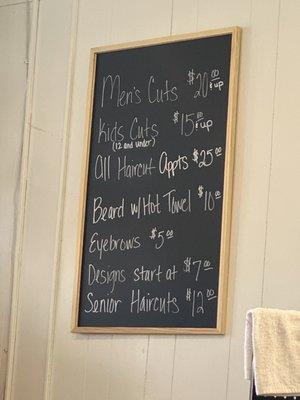 Men's Cuts $20.00 & up
Kids Cuts $15.00 & up
(12 and under)
All Haircut Appts $25.00
Beard w/ Hot Towel $10.00
Eyebrows $5.00
Designs start at $7.00
Senior Haircuts $12.00